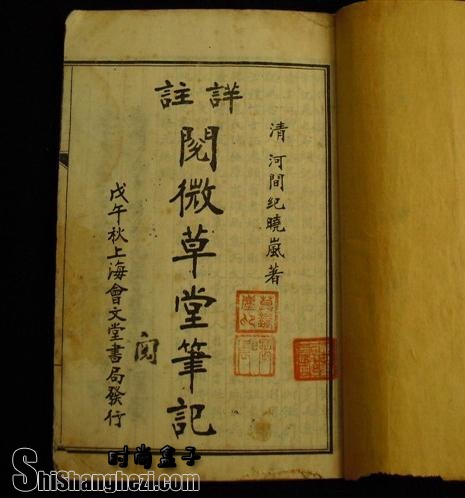 詳註
清河間紀曉嵐著
閱微草堂筆記
閱
戊午秋上海會文堂書局發行
时尚盒子
ShiShanghezi.com